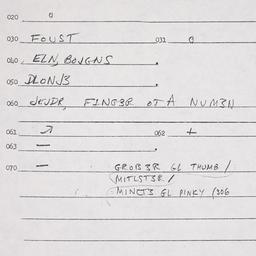 020 0
030 FOUST 031 0
040 ELN, BOJGNS .
050 DLONJ3 .
060 JEUDR, FINGER OT A NUM3N
061 ↗ 062 +
063 — .
070 — GROB3R GL THUMB /
MITLST3R /
MINCT3 GL PINKY (306